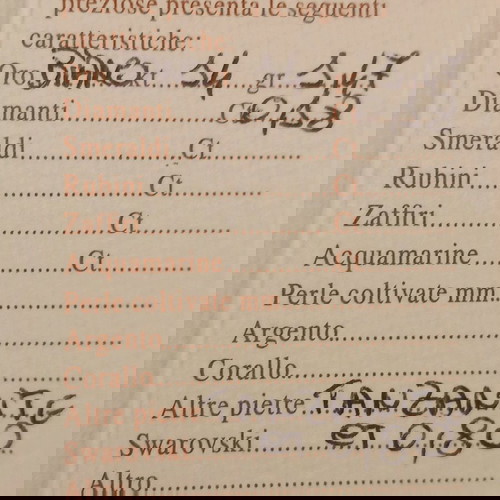 preziose presenta le seguenti
caratteristiche:
Oro BIANCO Kt. 14 gr.
Diamanti Ct.
Smeraldi Ct.
Rubini Ct.
Zaffiri Ct.
Acquamarine Ct.
Perle coltivate mm.
Argento
Corallo
Altre pietre TANZANITE
Swarovski CT 0,80
Altro